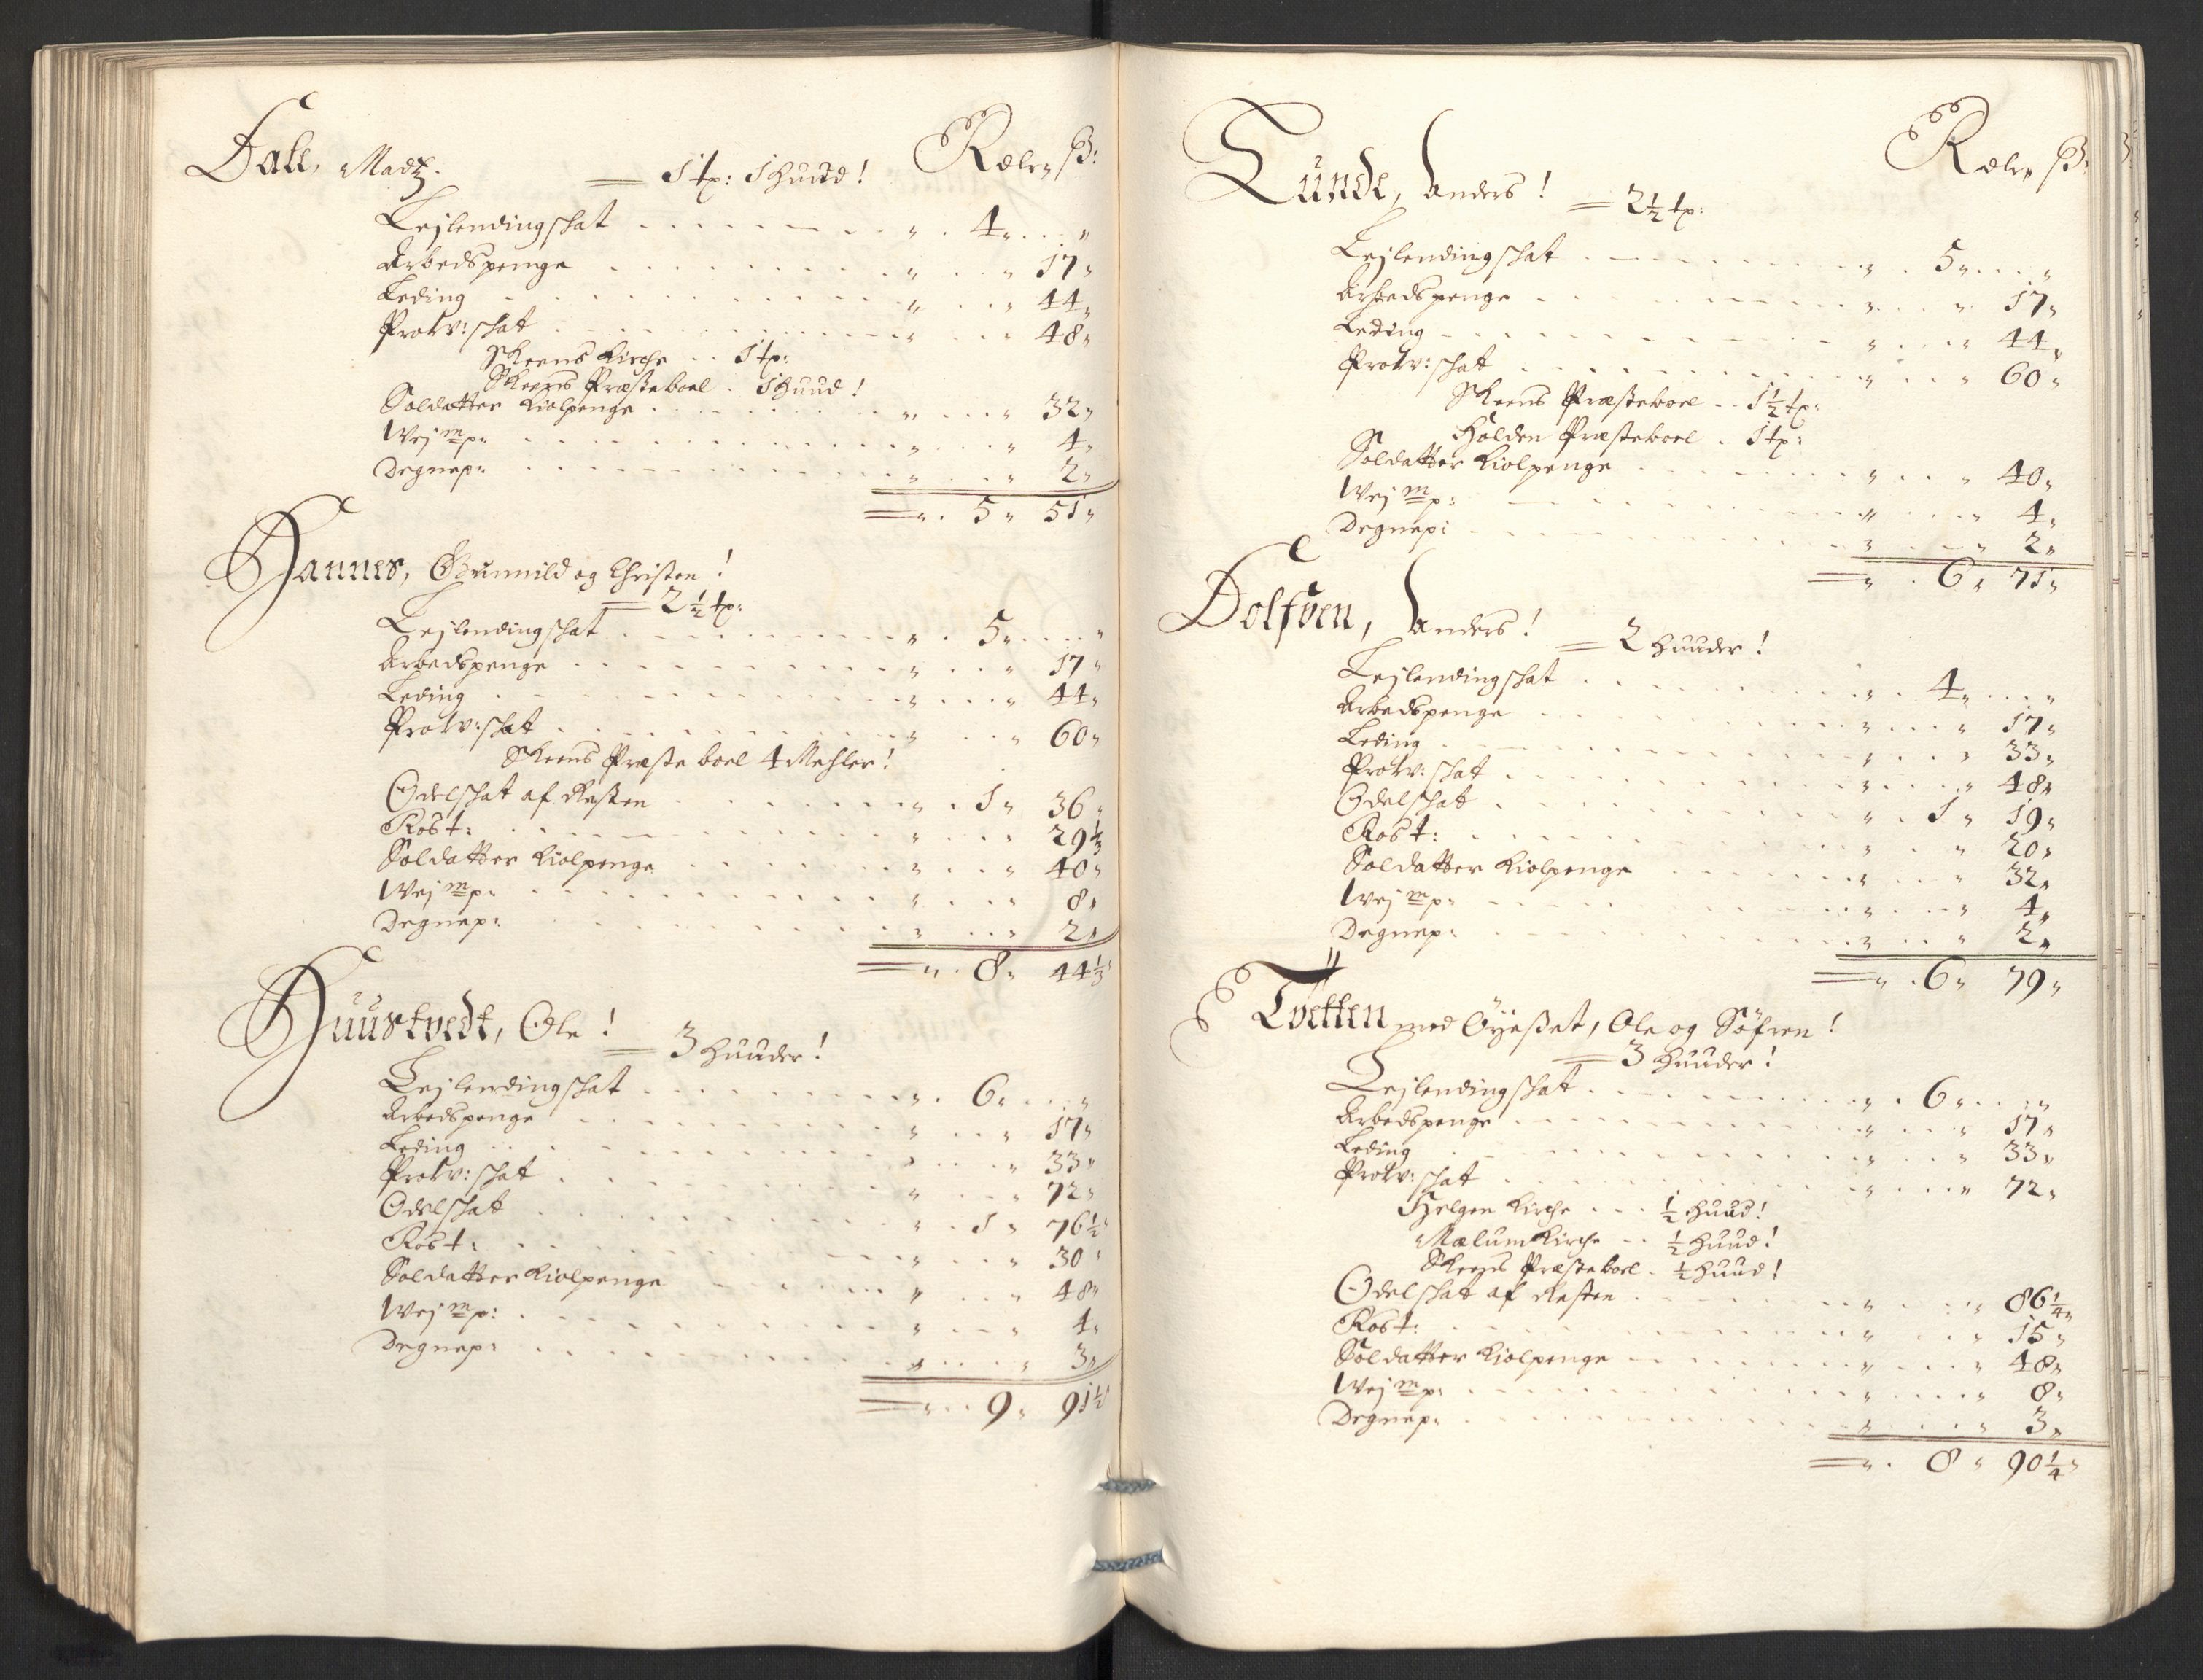 Rdlr, ß:
Dall, Madtz. = 1 tp: 1 huud!
Lejlendingschat . . . . . „ . 4 „ . . . „
Arbedspenge . . . . . „ . . „ 17 „
Leding . . . . . „ . . „ 44 „
Prow: schat . . . . . „ . . „ 48 „
Skeens Kirche . . 1 tp:
Skeens Præsteboel . 1 huud!
Soldatter Kiolpenge . . . . . „ . . „ 32 „
Wej mp: . . . . . „ . . „ 4 „
Degnep: . . . . . „ . . „ 2 „
= „ . 5 „ 51 „
Hannes, Gunnild og Christen!
= 2 1/2 tp:
Lejlendingschat . . . . . „ . 5 „ . . . „
Arbedspenge . . . . . „ . . „ 17 „
Leding . . . . . „ . . „ 44 „
Prow: schat . . . . . „ . . „ 60 „
Skeens Præste boel 4 Mehler!
Odelschat af Resten . . . . . „ . 1 „ 36 „
Rost: . . . . . „ . . „ 29 1/3
Soldatter Kiolpenge . . . . . „ . . „ 40 „
Wej mp: . . . . . „ . . „ 8 „
Degnep: . . . . . „ . . „ 2 „
= „ . 8 „ 44 1/3
Huustvedt, Ole! = 3 huuder!
Lejlendingschat . . . . . „ . 6 „ . . . „
Arbedspenge . . . . . „ . . „ 17 „
Leding . . . . . „ . . „ 33 „
Prow: schat . . . . . „ . . „ 72 „
Odelschat . . . . . „ . 1 „ 76 1/2
Rost: . . . . . „ . . „ 30
Soldatter Kiolpenge . . . . . „ . . „ 48 „
Wej mp: . . . . . „ . . „ 4 „
Degnep: . . . . . „ . . „ 3 „
= „ . 9 „ 91 1/2
Rdlr, ß:
Lunde, Anders! = 2 1/2 tp:
Lejlendingschat . . . . . „ . 5 „ . . . „
Arbedspenge . . . . . „ . . „ 17 „
Leding . . . . . „ . . „ 44 „
Prow: schat . . . . . „ . . „ 60 „
Skeens Præsteboel . . 1 1/2 tp:
Holden Præsteboel . 1 tp:
Soldatter Kiolpenge . . . . . „ . . „ 40 „
Wej mp: . . . . . „ . . „ 4 „
Degnep: . . . . . „ . . „ 2 „
= „ . 6 „ 71 „
Dolfven, Anders! = 2 huuder!
Lejlendingschat . . . . . „ . 4 „ . . . „
Arbedspenge . . . . . „ . . „ 17 „
Leding . . . . . „ . . „ 33 „
Prow: schat . . . . . „ . . „ 48 „
Odelschat . . . . . „ . 1 „ 19 „
Rost: . . . . . „ . . „ 20 „
Soldatter Kiolpenge . . . . . „ . . „ 32 „
Wej mp: . . . . . „ . . „ 4 „
Degnep: . . . . . „ . . „ 2 „
= „ . 6 „ 79 „
Tvetten med Öyeßæt, Ole og Söfren!
= 3 huuder!
Lejlendingschat . . . . . „ . 6 „ . . . „
Arbedspenge . . . . . „ . . „ 17 „
Leding . . . . . „ . . „ 33 „
Prow: schat . . . . . „ . . „ 72 „
Helgen Kirche . . . 1/2 huud!
Mælum Kirche . . 1/2 huud!
Skeens Præsteboel . 1/2 huud!
Odelschat af Resten . . . . . „ . . „ 86 1/4 „
Rost: . . . . . „ . . „ 15 „
Soldatter Kiolpenge . . . . . „ . . „ 48 „
Wej mp: . . . . . „ . . „ 8 „
Degnep: . . . . . „ . . „ 3 „
= „ . 8 „ 90 1/4 „